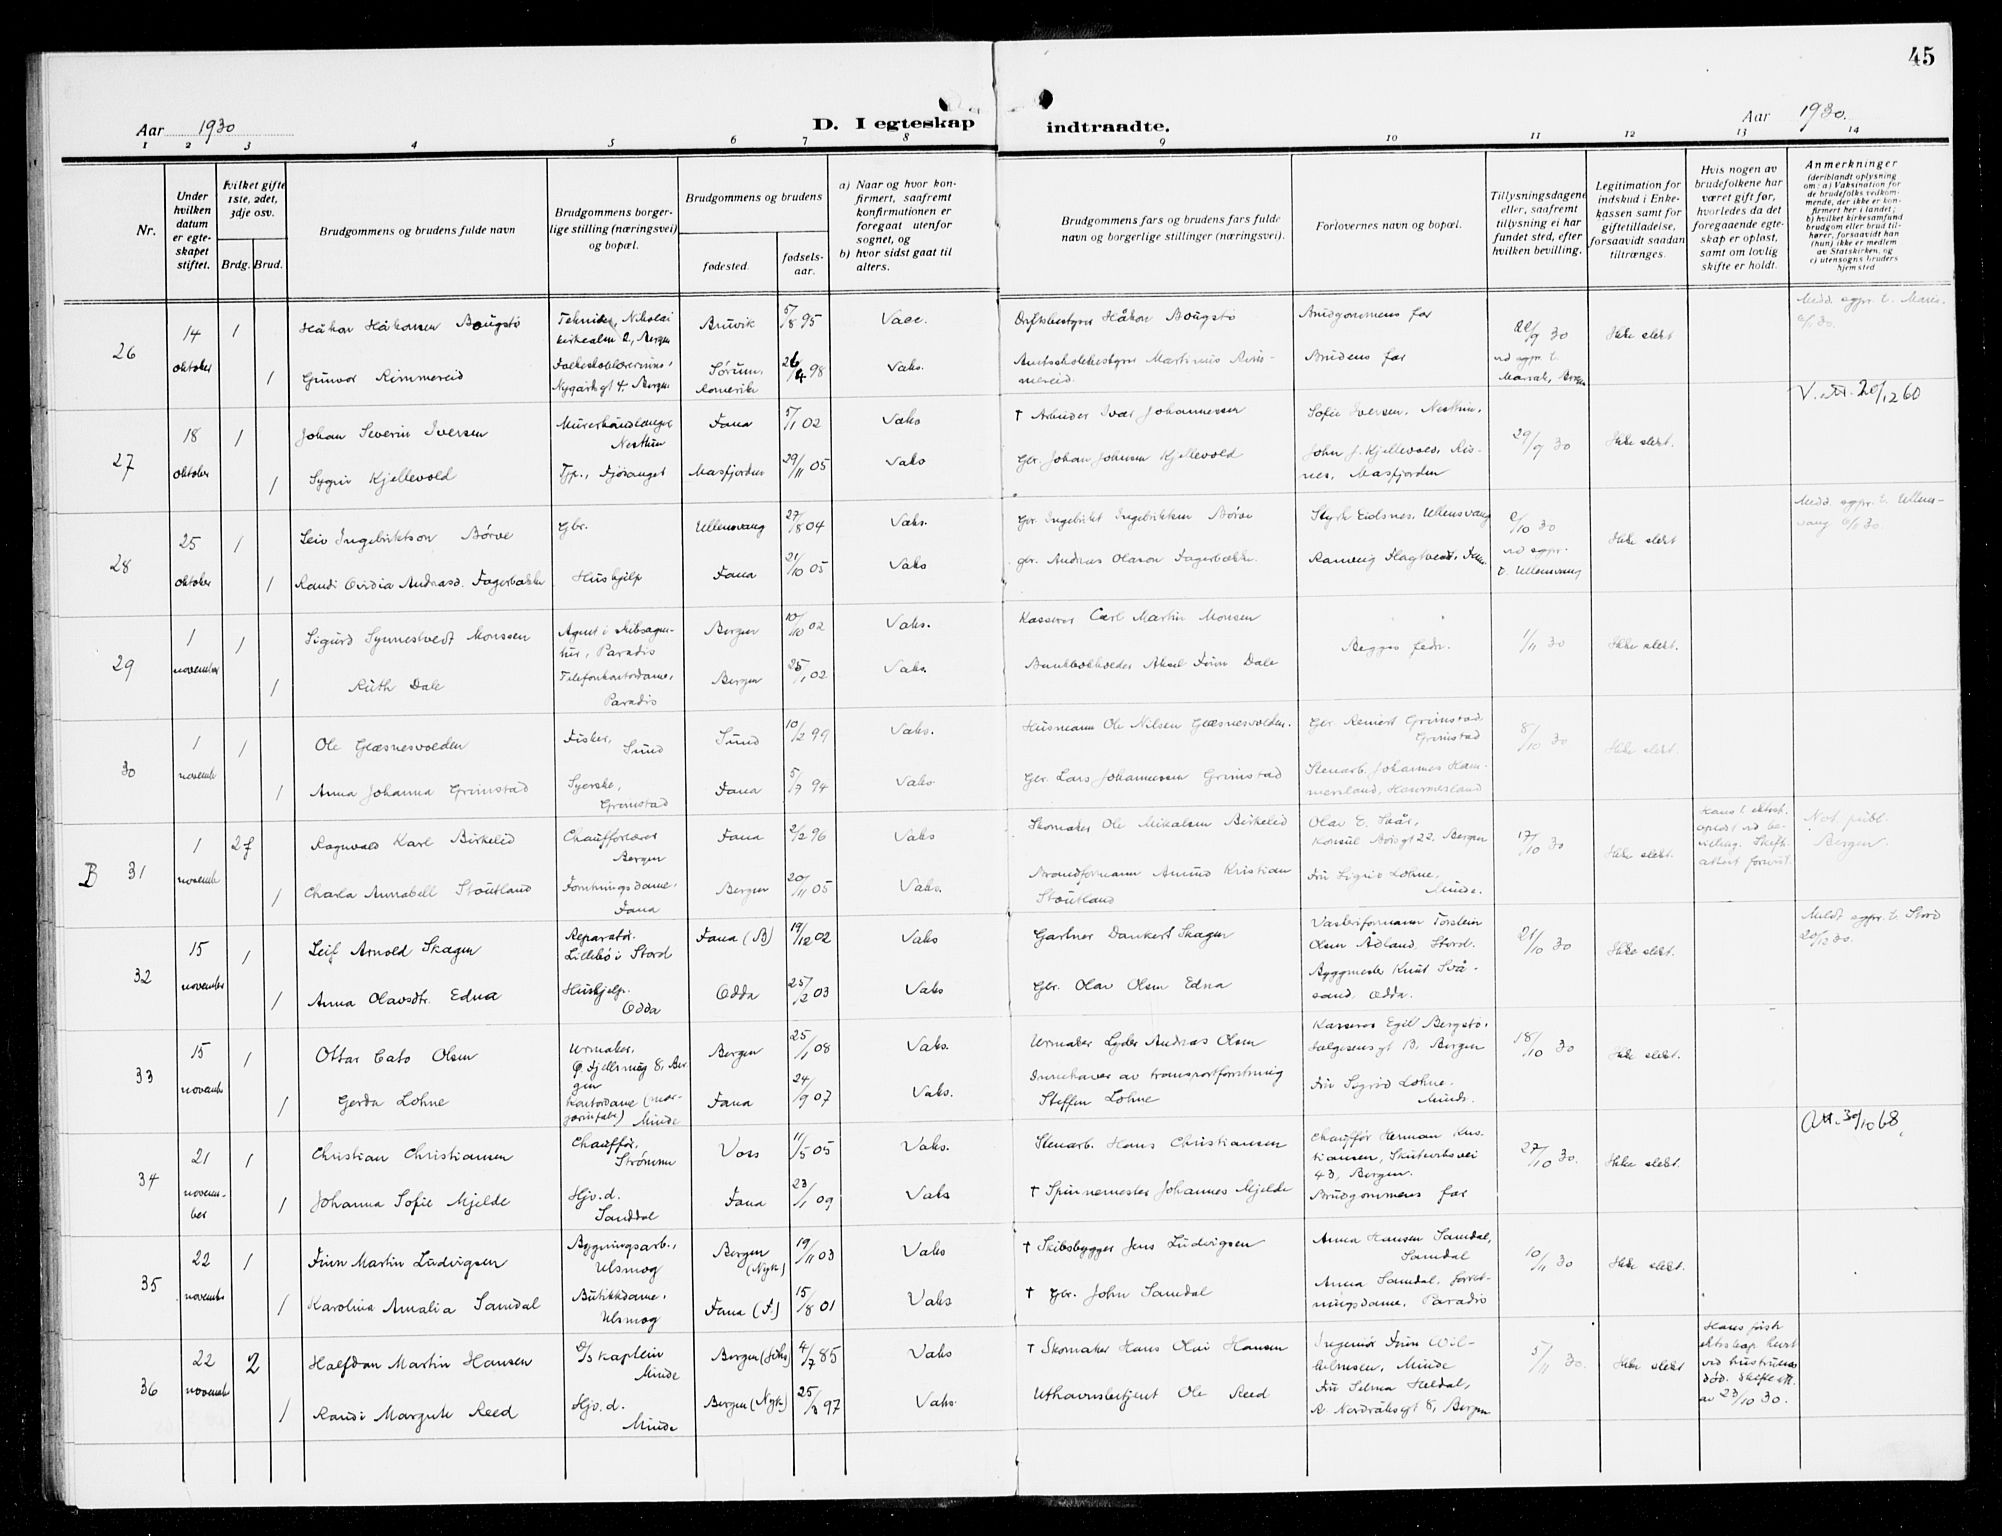 45
Aar 1930
D. I egteskap indtraadte.
Aar 1930.
1 2 3 4 5 6 7 8 9 10 11 12 13 14
Nr.
Under hvilken datum er egteskapet stiftet.
hvilket gifte 1ste, 2det, 3dje osv.
Brdg. Brud.
Brudgommens og brudens fulde navn
Brudgommens borgerlige stilling (næringsvei) og bopæl.
Brudgommens og brudens
fødested.
fødselsaar.
a) Naar og hvor konfirmert, saafremt konfirmationen er foregaat utenfor sognet, og
b) hvor sidst gaat til alters.
Brudgommens fars og brudens fars fulde navn og borgerlige stillinger (næringsvei).
Forlovernes navn og bopæl.
Tillysningsdagene eller, saafremt tillysning ei har fundet sted, efter hvilken bevilling.
Legitimation for indskud i Enkekassen samt for giftetilladelse, forsaavidt saadan tiltrænges.
Hvis nogen av brudefolkene har været gift før, hvorledes da det foregaaende egteskap er opløst, samt om lovlig skifte er holdt.
Anmerkninger
(deriblandt oplysning om: a) Vaksination for de brudefolks vedkommende, der ikke er konfirmert her i landet;
b) hvilket kirkesamfund brudgom eller brud tilhører, forsaavidt han (hun) ikke er medlem av Statskirken, og
c) utensogns bruders hjemsted
26 14 oktober 1 Håkon Håkonsen Bougstø Tekniker, Nikolai kirkealm. 2, Bergen Bruvik 5/8 95 Vacc. Driftsbestyrer Håkon Bougstø Brudgommens far 22/9 30 Ikke slekt
1 Gunvor Rimmereid Folkeskolelærerinne, Nygårdsgt 4. Bergen Sørum, Romerike 26/4 98 Vaks. Martinus Rimmereid. Brudens far
27 18 oktober 1 Johan Severin Iversen Murerhåndlanger, Nesttun Fana 5/1 02 Vaks † Arbeider Ivar Johannessen Sofie Iversen, Nesttun, 29/9 30 Ikke slekt. V. att. 20/12 60
1 Sygni Kjellevold Tjp., Fjøsanger Masfjorden 29/11 05 Vaks Gbr. Johan Johnsen Kjellevold John J. Kjellevold, Risnes, Masfjorden
28 25 oktober 1 Leiv Ingebriktson Børve Gbr. Ullensvang 27/8 04 Vaks. Gbr. Ingebrikt Ingebriktsen Børve Styrk Eidsnes, Ullensvang 2/10 30 Ikke slekt
1 Randi Ovidia Andreasd. Fagerbakke Hushjelp Fana 21/10 05 Vaks gbr. Andreas Olason Fagerbakke
29 1 november 1 Sigurd Synnestvedt Monssen Agent i skibsagentur, Paradis Bergen 10/10 02 Vaks. Kasserer Carl Martin Monsen Begges fedre. 1/11 30 Ikke slekt.
1 Ruth Dale Telefonkontordame, Paradis Bergen 25/1 02 Vaks. Bankbokholder Aksel Finn Dale
30 1 november 1 Ole Glesnesvolden Fisker, Sund Sund 10/2 99 Vaks. Husmann Ole Nilsen Glesnesvolden. Gbr. Reinert Grimstad, Grimstad 8/10 30 Ikke slekt.
1 Anna Johanna Grimstad Syerske, Grimstad Fana 5/7 94 Vaks Gbr. Lars Johannessen Grimstad Stenarb. Johannes Hammersland, Hammersland
B 31 1 november 2f Ragnvald Karl Birkelid Chaufførlærer Bergen Fana 2/2 96 Vaks Skomaker Ole Mikalsen Birkelid Olav E. Skår, Konsul Børsgt 22, Bergen 17/10 30 Ikke slekt. Not. publ. Bergen.
1 Charla Annabell Stoutland Forretningsdame, Fana Bergen 20/11 05 Vaks. Brandformann Amund Kristian Stoutland Fru Sigrid Lohne, Minde.
32 15 november 1 Leif Arnold Skagen Reparatør. Lillebø i Stord Fana (B) 19/12 02 Vaks Gartner Dankert Skagen Torstein Olsen Ådland, Stord. 21/10 30 Ikke slekt. Meldt sgpr. t. Stord 20/12 30.
1 Anna Olavsdtr. Edna Hushjelp. Odda Odda 25/2 03 Vaks Gbr. Olav Olsen Edna Byggmester Knut Svåsand, Odda.
33 15 november 1 Ottar Cato Olsen Urmaker, Ø. Fjellsmug 8, Bergen Bergen 25/1 08 Vaks. Urmaker Lyder Andreas Olsen Kasserer Egil Bergstø, Helgesensgt 13, Bergen 18/10 30 Ikke slekt.
1 Gerda Lohne Kontordame (margarinfabr.) Minde Fana 24/9 07 Vaks. Innehaver av transportforretning Steffen Lohne Fru Sigrid Lohne, Minde.
34 21 november 1 Christian Christiansen Chauffør, Strømmen Voss 11/5 05 Vaks. Stenarb. Hans Christiansen Chauffør Herman Kristiansen, Skuteviksvei 43, Bergen. 27/10 30. Ikke slekt. Att. 30/10 68.
1 Johanna Sofie Mjelde Hjv. d. Sanddal Fana 23/1 09 Vaks † Spinnemester Johannes Mjelde Brudgommens far
35 22 november 1 Finn Martin Ludvigsen Bygningsarb., Ulsmog Bergen (Nyk.) 19/11 03 Vaks † Skibsbygger Jens Ludvigsen Anna Hansen Samdal, Samdal 10/11 30 Ikke slekt.
1 Karolina Amalia Samdal Butikkdame, Ulsmog Fana (F.) 15/8 01 Vaks † Gbr. John Samdal Anna Samdal, forretningsdame, Paradis
36 22 november 2 Halfdan Martin Hansen D/S kaptein Minde Bergen 4/7 85 Vaks † Skomaker Hans Olai Hansen Ingeniør Finn Wilhelmsen, Minde 5/11 30. Ikke slekt Hans første ekteskap hevet ved hustruens død. Skifteatt. av 23/10 30.
1 Randi Margrethe Reed Hjv. d. Minde Bergen (Nyk.) 25/2 97 Vaks. Uthavnsbetjent Ole Reed Fru Selma Heldal, Bergen